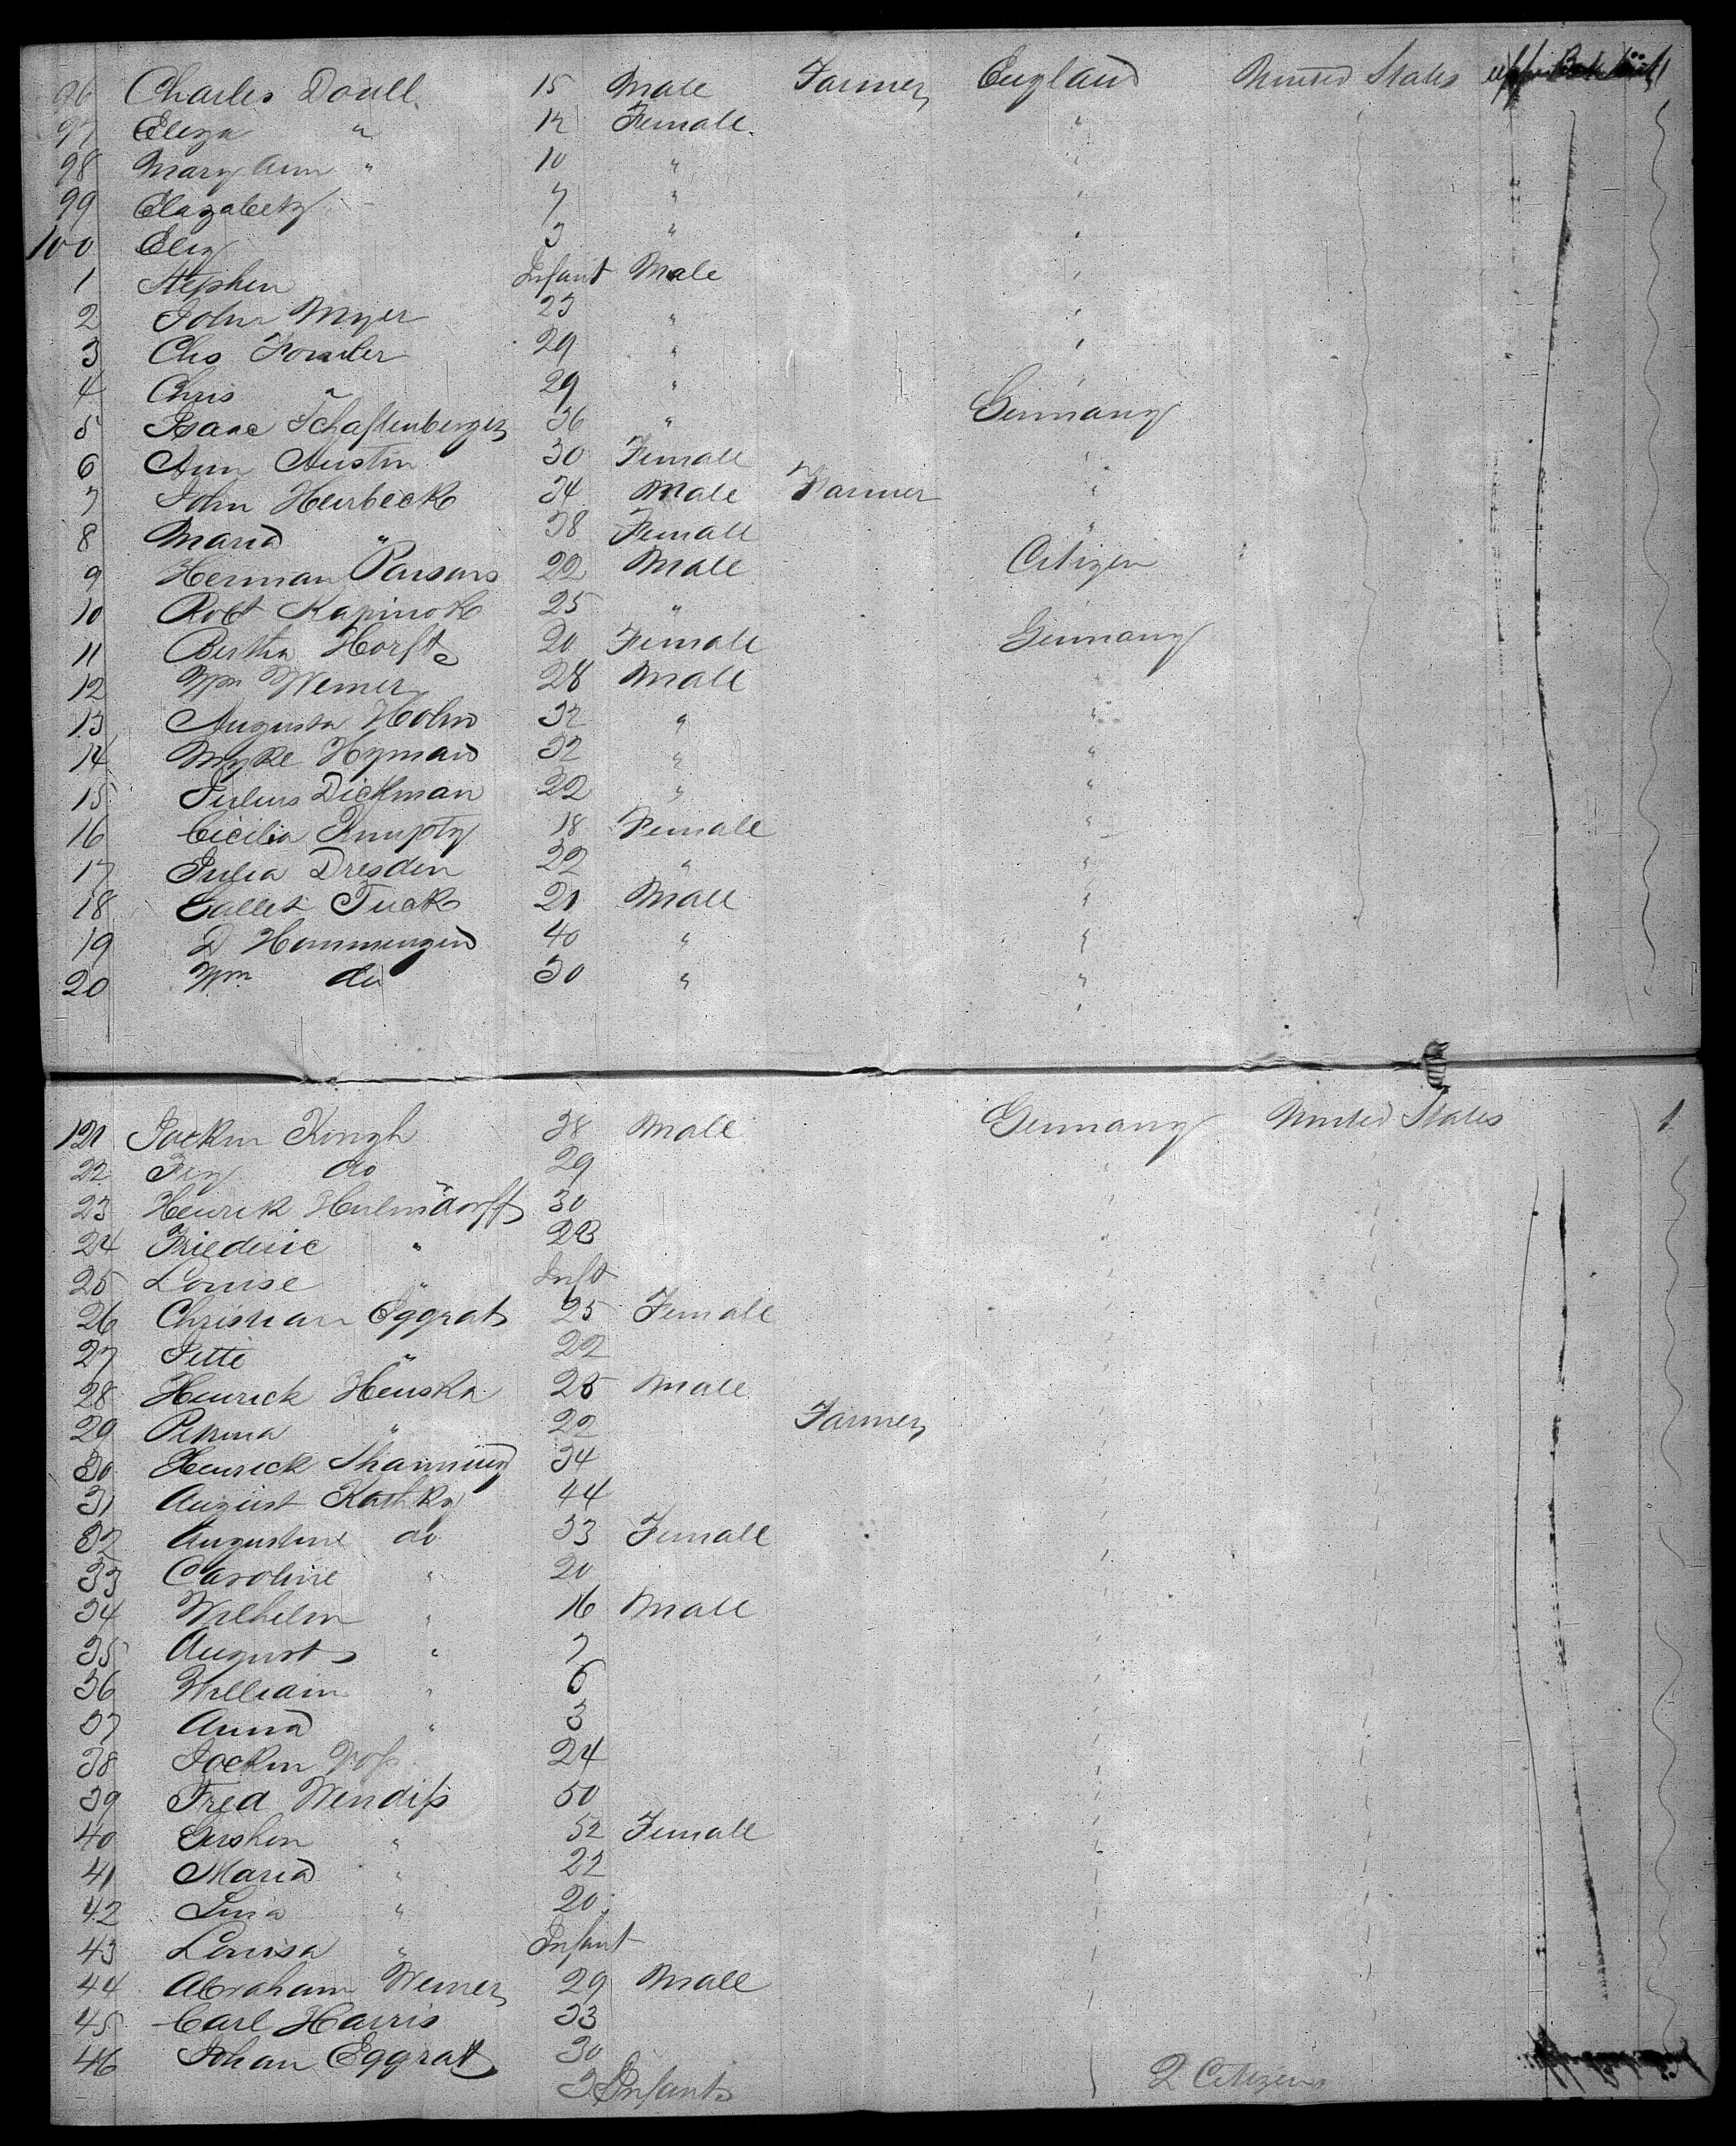 96 Charles Doull 15 Male Farmer England United States
97 Eliza " 12 Female "
98 Mary Ann " 10 " "
99 Elazabeth 7 " "
100 Eliz 3 " "
1 Stephen Infant Male "
2 John Myer 23 " "
3 Chs Fowler 29 " "
4 Chris " 29 " "
5 Isaac Schaftenberger 36 " Germany
6 Ann Austin 30 Female "
7 John Heurbeck 34 Male Farmer "
8 Maria " 38 Female "
9 Herman Parsons 22 Male Citizen
10 Robt 25 "
11 Bertha Horft 20 Female Germany
12 Wm Werner 28 Male "
13 Augusta Holm 32 " "
14 Myke Hyman 32 " "
15 Julius Dickman 22 " "
16 Cicilia 18 Female "
17 Julia Dresden 22 " "
18 Tuck 21 Male "
19 D 40 " "
20 Wm do 30 " "
121 Jockm Kingh 38 Male Germany United States 1
22 do 29
23 Henrick 30
24 Friederic " 28
25 Louise " Inft
26 Christian Eggrat 25 Female
27 Jette " 22
28 Henrick Henska 25 Male
29 " 22 Farmer
30 Henrick 34
31 August Kashky 44
32 Augustine do 33 Female
33 Caroline " 20
34 Wilhelm " 16 Male
35 August " 7
36 William " 6
37 Anna " 3
38 Jockm Voss 24
39 Fred Wendiss 50
40 " 52 Female
41 Maria " 22
42 Lina " 20
43 Louisa " Infant
44 Abraham Werner 29 Male
45 Carl Harris 33
46 Johan Eggrat 30
3 Infants 2 Citizens